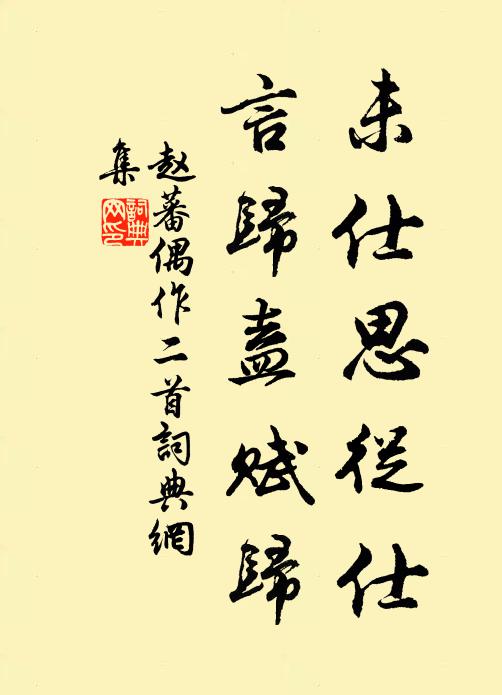 未仕思從仕
言歸盍賦歸
赵蕃偶作二首詞典網
集
詞典
网印